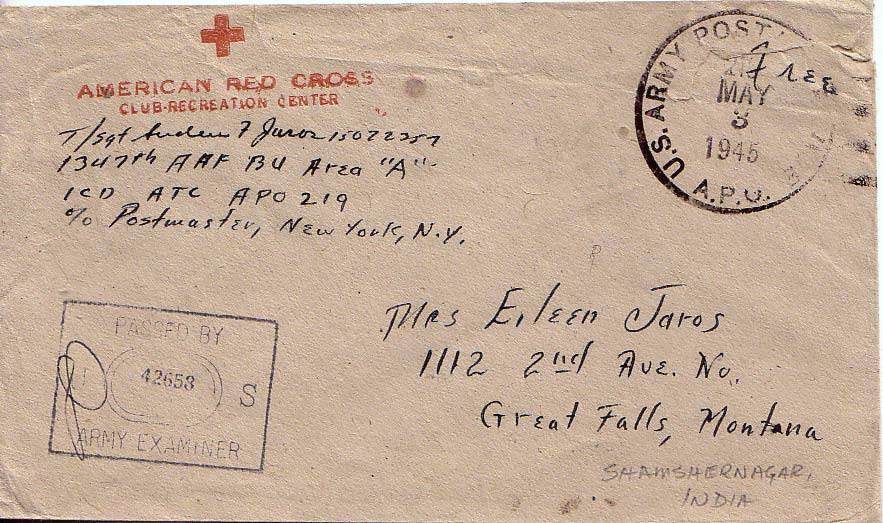 AMERICAN RED CROSS
CLUB-RECREATION CENTER
T/Sgt Andrew F Jaros 15072257
1347th AAF BU Area "A"
ICD ATC APO 219
c/o Postmaster, New York, N.Y.
U.S. ARMY POSTAL
A.P.O.
MAY
3
1945
Free
Mrs Eileen Jaros
1112 2nd Ave. No.
Great Falls, Montana
PASSED BY
42653
S
ARMY EXAMINER
SHAMSHERNAGAR,
INDIA